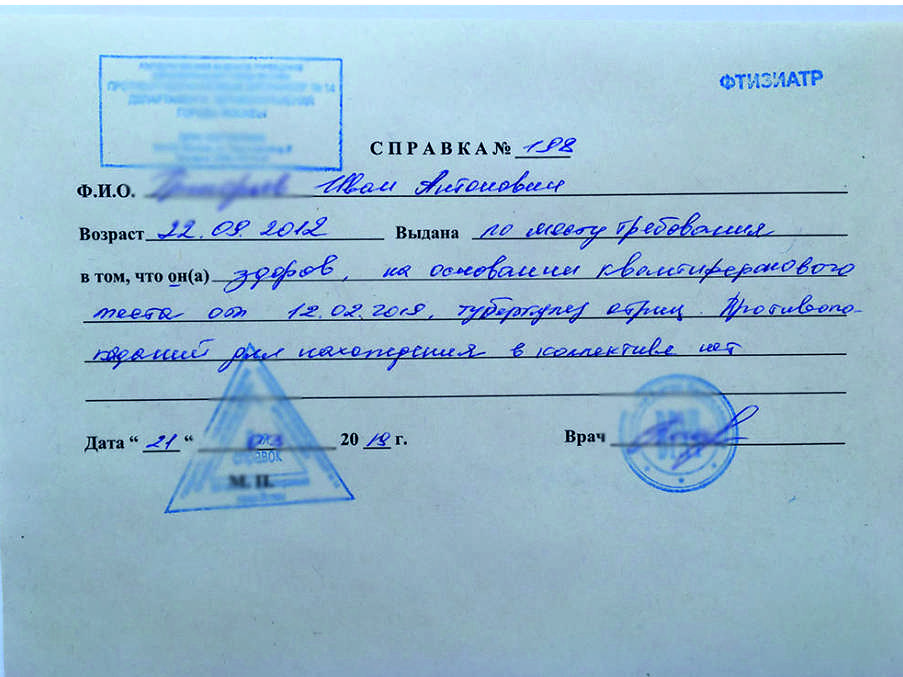 ФТИЗИАТР
№ 14
ГОРОДА МОСКВЫ
СПРАВКА № 198
Ф.И.О. Иван Антонович
Возраст 22.09.2012 Выдана по месту требования
в том, что он(а) здоров, на основании квантиферонового
теста от 12.02.2019, туберкулез отриц. Противопо-
казаний для нахождения в коллективе нет
Дата “ 21 “ 20 19 г. Врач
М. П.